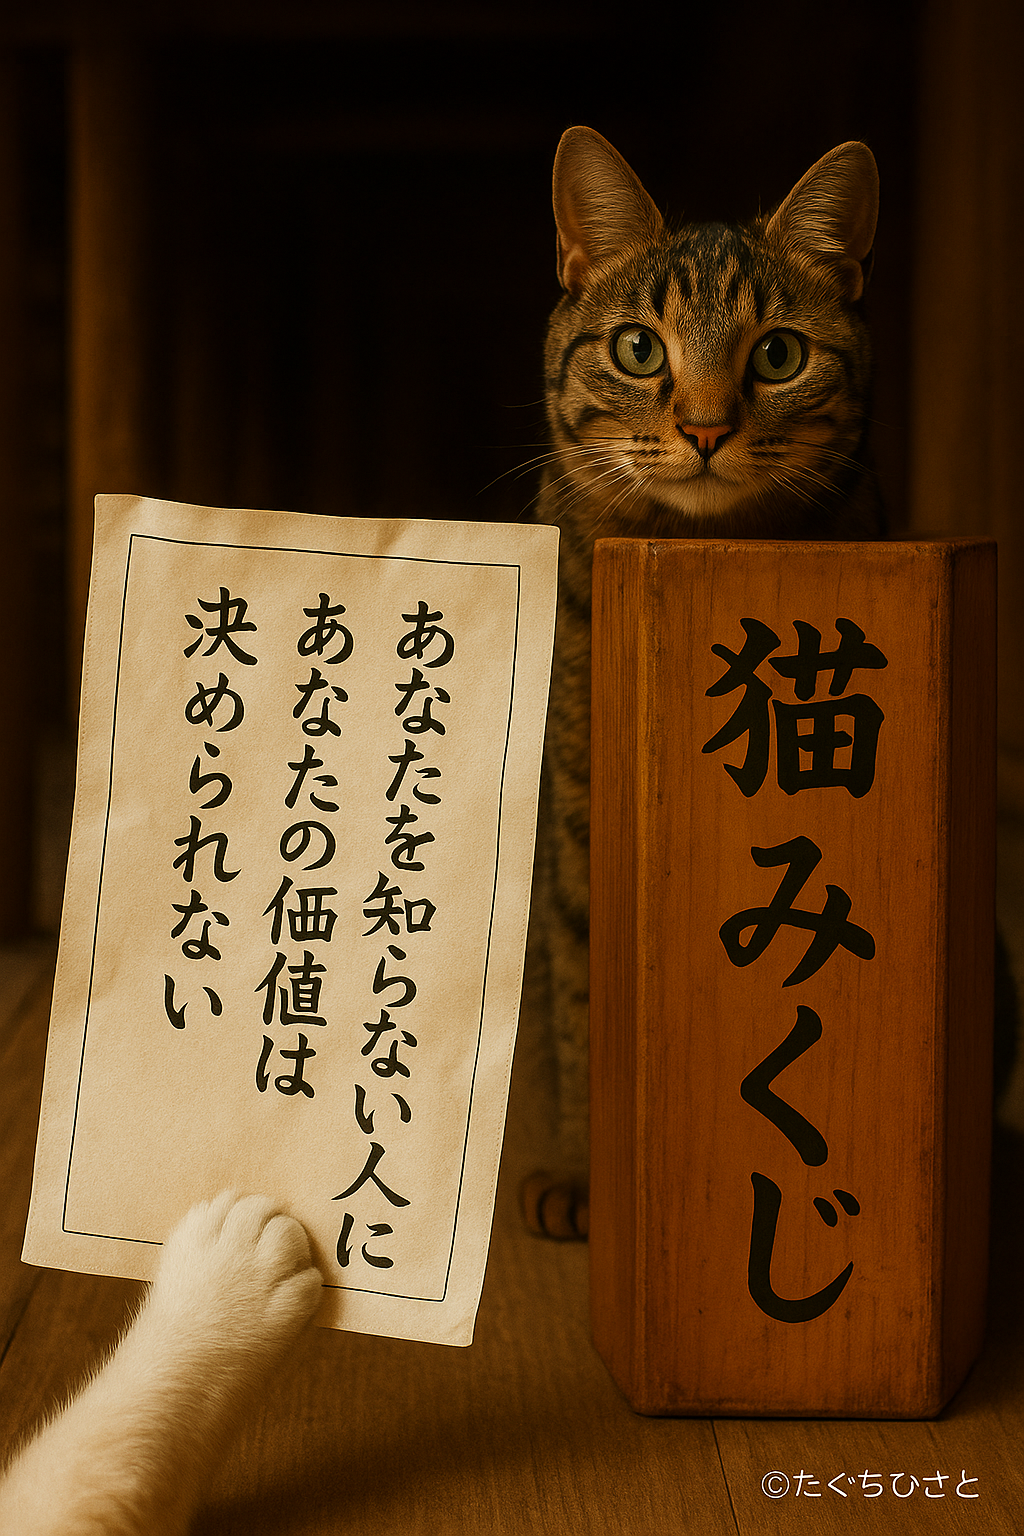 あなたを知らない人に
あなたの価値は
決められない
猫みくじ
©たぐちひさと